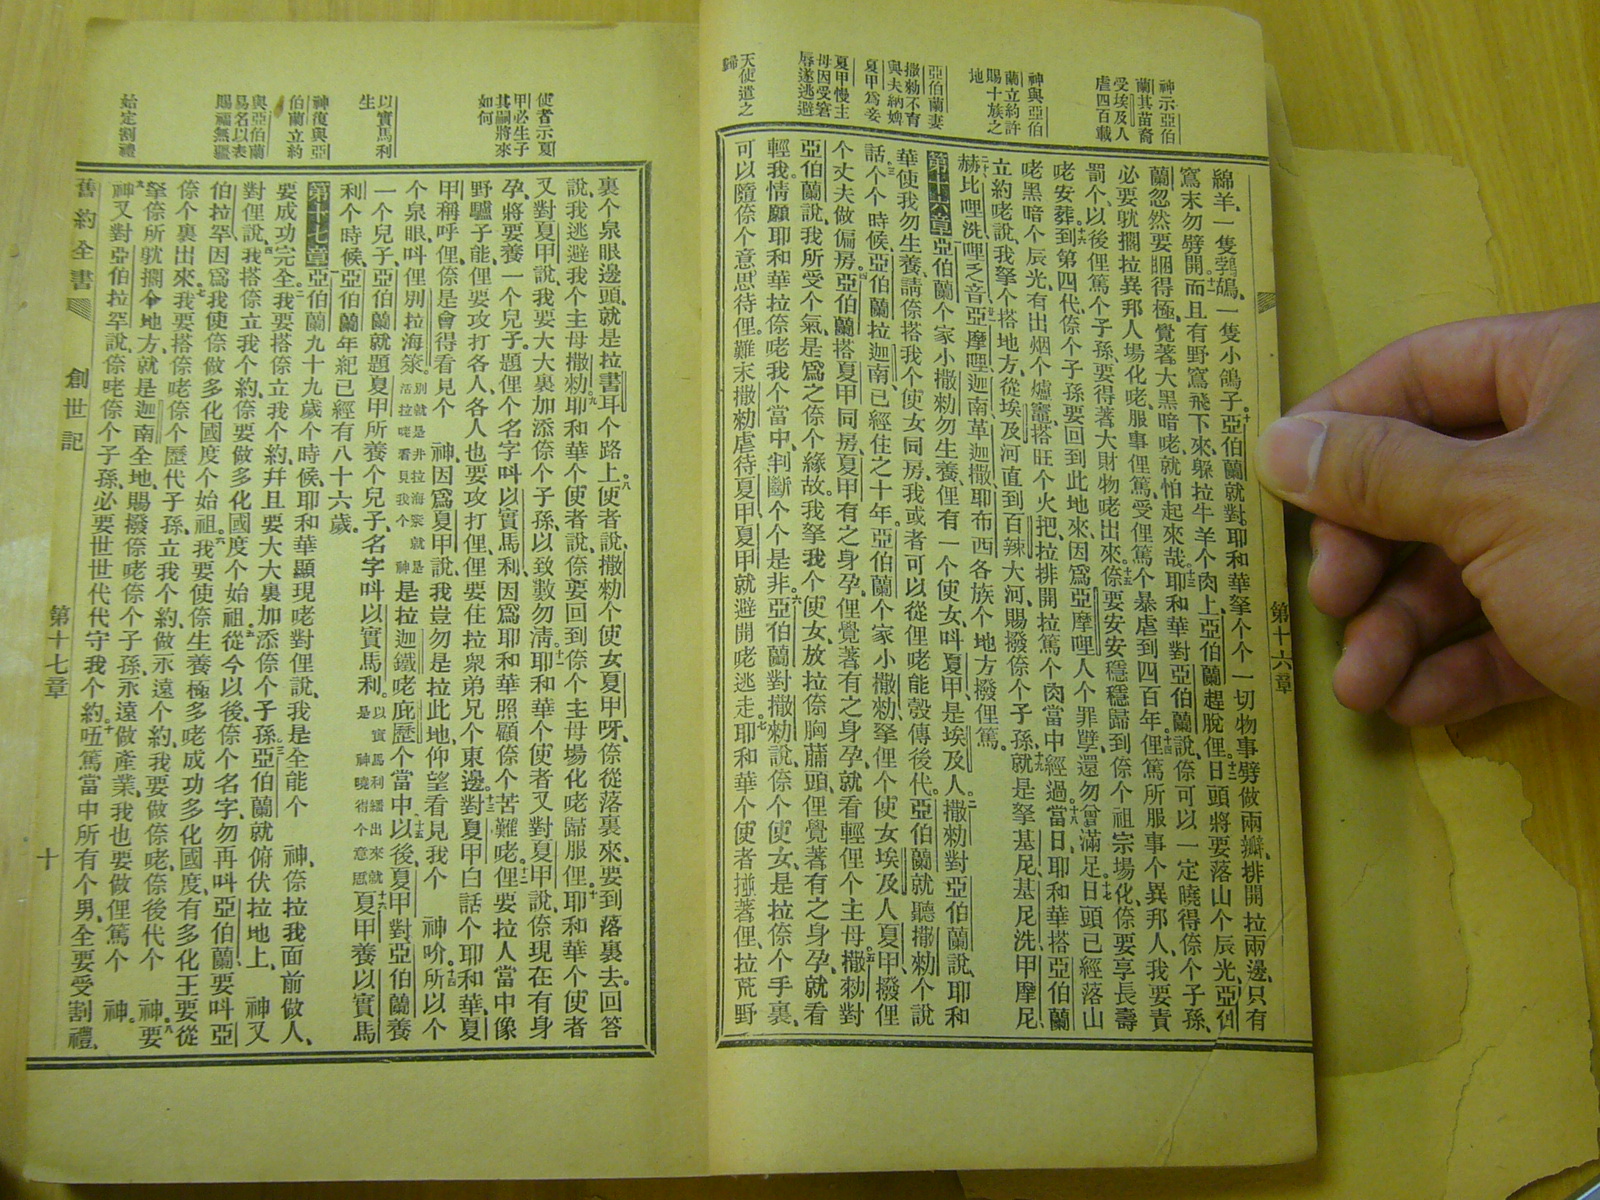 神示亞伯
蘭其苗裔
受埃及人
虐四百載
神與亞伯
蘭立約許
賜十族之
地
亞伯蘭妻
撒勑不育
與夫納婢
夏甲爲妾
夏甲慢主
母因受窘
辱遂逃避
天使遣之
歸
綿羊、一隻鶉鴣、一隻小鴿子、亞伯蘭就對耶和華拏个个一切物事劈做兩瓣、排開拉兩邊、只有
窵末勿劈開。而且有野窵飛下來、躲拉牛羊个肉上、亞伯蘭趕脫俚。日頭將要落山个辰光、亞伯
蘭忽然要睏得極、覺著大黑暗咾、就怕起來哉。耶和華對亞伯蘭說、倷可以一定曉得倷个子孫、
必要躭擱拉異邦人場化咾服事俚篤、受俚篤个暴虐到四百年。俚篤所服事个異邦人、我要責
罰个、以後俚篤个子孫、要得著大財物咾出來。倷要安安穩穩歸到倷个祖宗場化、倷要享長壽
咾安葬。到第四代、倷个子孫要回到此地來、因爲亞摩哩人个罪孽、還勿曾滿足。日頭已經落山
咾黑暗个辰光、有出烟个爐竈、搭旺个火把、拉排開拉篤个肉當中經過。當日、耶和華搭亞伯蘭
立約咾說、我拏个搭地方、從埃及河直到百辣大河、賜撥倷个子孫。就是拏基尼、基尼洗、甲摩尼、
赫、比哩洗、哩乏音、亞摩哩、迦南、革迦撒、耶布西、各族个地方撥俚篤。
第十六章 亞伯蘭个家小撒勑勿生養、俚有一个使女、呌夏甲、是埃及人。撒勑對亞伯蘭說、耶和
華使我勿生養、請倷搭我个使女同房、我或者可以從俚咾能彀傳後代。亞伯蘭就聽撒勑个說
話。个个時候、亞伯蘭拉迦南、已經住之十年。亞伯蘭个家小撒勑、拏俚个使女埃及人夏甲、撥俚
个丈夫做偏房。亞伯蘭搭夏甲同房、夏甲有之身孕、俚覺著有之身孕、就看輕俚个主母。撒勑對
亞伯蘭說、我所受个氣、是爲之倷个緣故。我拏我个使女、放拉倷胸膈頭、俚覺著有之身孕、就看
輕我、情願耶和華拉倷咾我个當中、判斷个个是非。亞伯蘭對撒勑說、倷个使女、是拉倷个手裏、
可以隨倷个意思待俚。難末撒勑虐待夏甲、夏甲就避開咾逃走。耶和華个使者碰著俚、拉荒野
第十六章
使者示夏
甲必生子
其嗣將來
如何
以實馬利
生
神復與亞
伯蘭立約
與亞伯蘭
易名以表
賜福無疆
始定割禮
裏个泉眼邊頭、就是拉書耳个路上。使者說、撒勑个使女夏甲呀、倷從落裏來、要到落裏去。回答
說、我逃避我个主母撒勑。耶和華个使者說、倷要回到倷个主母場化咾歸服俚。耶和華个使者
又對夏甲說、我要大大裏加添倷个子孫、以致數勿淸。耶和華个使者又對夏甲說、倷現在有身
孕、將要養一个兒子、題俚个名字呌以實馬利、因爲耶和華照顧倷个苦難咾。俚要拉人當中像
野驢子能、俚要攻打各人、各人也要攻打俚、俚要住拉衆弟兄个東邊。對夏甲白話个耶和華、夏
甲稱呼俚倷是會得看見个 神、因爲夏甲說、我豈勿是拉此地仰望看見我个 神吤。所以个
个泉眼、呌俚別拉海萊、別就是井拉海萊就是活拉咾看見我个神 是拉迦鐵咾庇歷个當中。以後、夏甲對亞伯蘭養
一个兒子、亞伯蘭就題夏甲所養个兒子、名字呌以實馬利。以實馬利繙出來就是神曉得个意思 夏甲養以實馬
利个時候、亞伯蘭年紀已經有八十六歲。
第十七章 亞伯蘭九十九歲个時候、耶和華顯現咾對俚說、我是全能个 神、倷拉我面前做人、
要成功完全。我要搭倷立我个約、幷且要大大裏加添倷个子孫。亞伯蘭就俯伏拉地上、 神又
對俚說、我搭倷立我个約、倷要做多化國度个始祖。從今以後、倷个名字、勿再呌亞伯蘭、要呌亞
伯拉罕、因爲我使倷做多化國度个始祖。我要使倷生養極多咾成功多化國度、有多化王要從
倷个裏出來。我要搭倷咾倷个歷代子孫、立我个約、做永遠个約、我要做倷咾、倷後代个 神。要
拏倷所躭擱个地方、就是迦南全地、賜撥倷咾倷个子孫、永遠做產業、我也要做俚篤个 神。
神又對亞伯拉罕說、倷咾倷个子孫、必要世世代代守我个約。㕶篤當中所有个男、全要受割禮、
舊約全書 創世記 第十七章 十